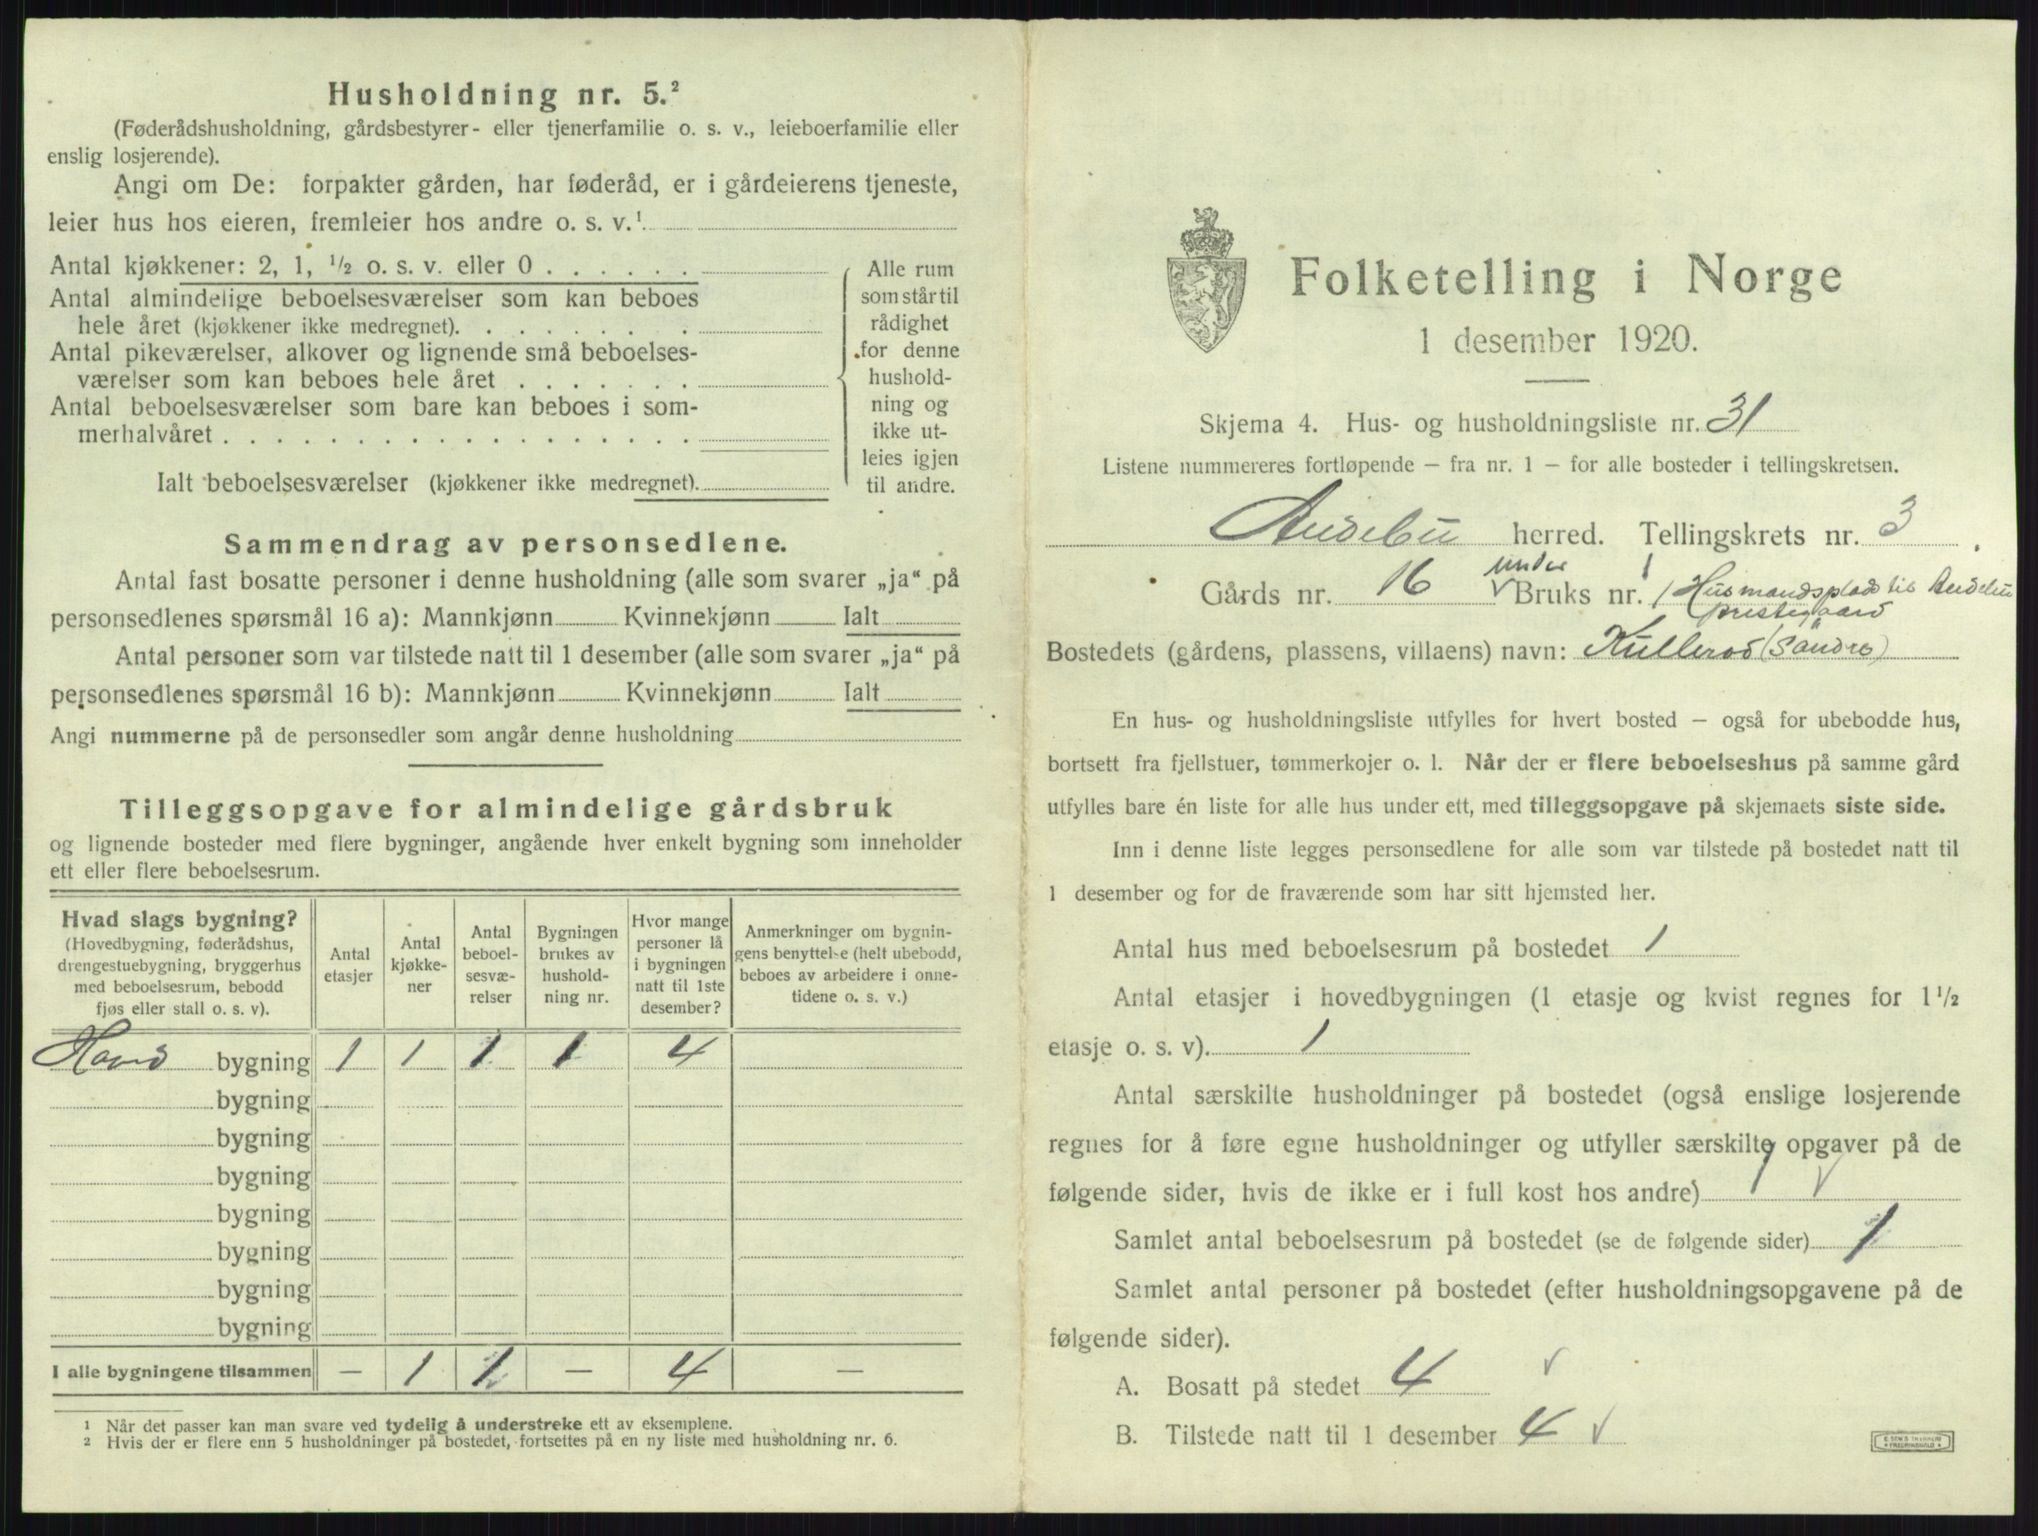 Husholdning nr. 5.²
(Føderådshusholdning, gårdsbestyrer- eller tjenerfamilie o. s. v., leieboerfamilie eller
enslig losjerende).
Angi om De: forpakter gården, har føderåd, er i gårdeierens tjeneste,
leier hus hos eieren, fremleier hos andre o. s. v.¹
Antal kjøkkener: 2, 1, ½ o. s. v. eller 0 . . . . . .
Antal almindelige beboelsesværelser som kan beboes
hele året (kjøkkener ikke medregnet). . . . . . . .
Antal pikeværelser, alkover og lignende små beboelses-
værelser som kan beboes hele året . . . . . . .
Antal beboelsesværelser som bare kan beboes i som-
merhalvåret . . . . . . . . . . . . . . . . . .
Ialt beboelsesværelser (kjøkkener ikke medregnet).
Alle rum
som står til
rådighet
for denne
hushold-
ning og
ikke ut-
leies igjen
til andre.
Sammendrag av personsedlene.
Antal fast bosatte personer i denne husholdning (alle som svarer „ja“ på
personsedlenes spørsmål 16 a): Mannkjønn Kvinnekjønn Ialt
Antal personer som var tilstede natt til 1 desember (alle som svarer „ja“ på
personsedlenes spørsmål 16 b): Mannkjønn Kvinnekjønn Ialt
Angi nummerne på de personsedler som angår denne husholdning
Tilleggsopgave for almindelige gårdsbruk
og lignende bosteder med flere bygninger, angående hver enkelt bygning som inneholder
ett eller flere beboelsesrum.
Hvad slags bygning?
(Hovedbygning, føderådshus,
drengestuebygning, bryggerhus
med beboelsesrum, bebodd
fjøs eller stall o. s. v).
Antal
etasjer
Antal
kjøkke-
ner
Antal
beboel-
sesvæ-
relser
Bygningen
brukes av
hushold-
ning nr.
Hvor mange
personer lå
i bygningen
natt til 1ste
desember?
Anmerkninger om bygnin-
gens benyttelse (helt ubebodd,
beboes av arbeidere i onne-
tidene o. s. v.)
Hoved bygning 1 1 1 1 4
bygning
bygning
bygning
bygning
bygning
bygning
bygning
I alle bygningene tilsammen — 1 1 — 4 —
¹ Når det passer kan man svare ved tydelig å understreke ett av eksemplene.
² Hvis der er flere enn 5 husholdninger på bostedet, fortsettes på en ny liste med husholdning nr. 6.
Folketelling i Norge
1 desember 1920.
Skjema 4. Hus- og husholdningsliste nr. 31
Listene nummereres fortløpende – fra nr. 1 – for alle bosteder i tellingskretsen.
Andebu herred. Tellingskrets nr. 3
under 1
Gårds nr. 16 √ Bruks nr. / Husmandsplads til Andebu
prestegaard
Bostedets (gårdens, plassens, villaens) navn: Kullerød (Søndre)
En hus- og husholdningsliste utfylles for hvert bosted – også for ubebodde hus,
bortsett fra fjellstuer, tømmerkojer o. l. Når der er flere beboelseshus på samme gård
utfylles bare én liste for alle hus under ett, med tilleggsopgave på skjemaets siste side.
Inn i denne liste legges personsedlene for alle som var tilstede på bostedet natt til
1 desember og for de fraværende som har sitt hjemsted her.
Antal hus med beboelsesrum på bostedet 1
Antal etasjer i hovedbygningen (1 etasje og kvist regnes for 1½
etasje o. s. v). 1
Antal særskilte husholdninger på bostedet (også enslige losjerende
regnes for å føre egne husholdninger og utfyller særskilte opgaver på de
følgende sider, hvis de ikke er i full kost hos andre) 1 √
Samlet antal beboelsesrum på bostedet (se de følgende sider) 1
Samlet antal personer på bostedet (efter husholdningsopgavene på de
følgende sider).
A. Bosatt på stedet 4 √
B. Tilstede natt til 1 desember 4 √